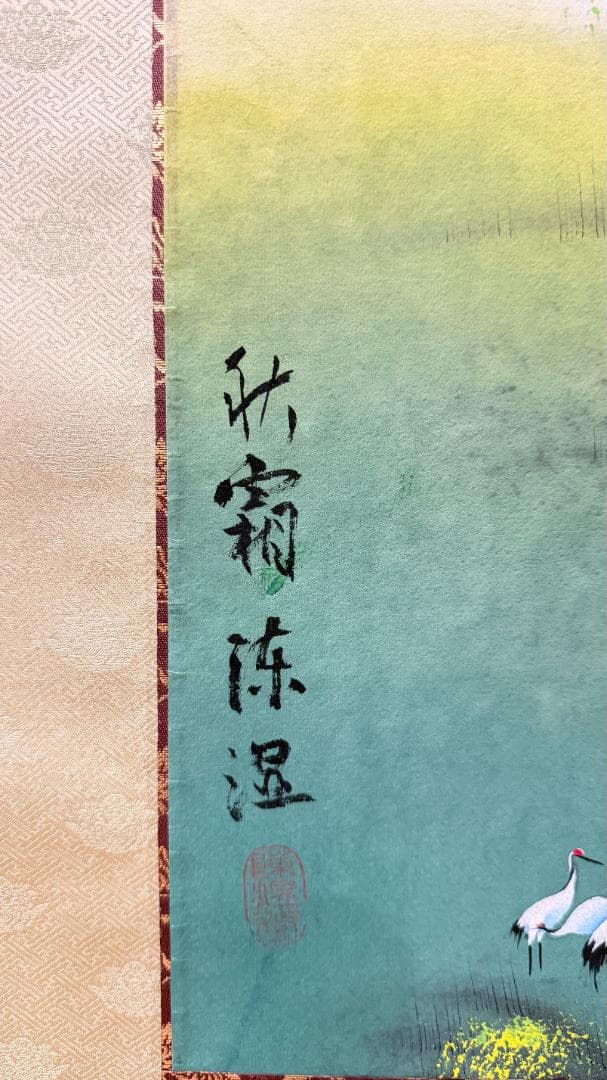 秋霜陈湿